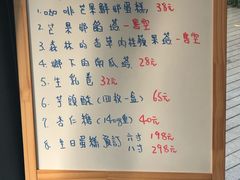 1.咖啡芒果鮮奶蛋糕 38元
2.芒果椰奶塔-售空
3.森林的香草肉桂蘋果塔-售空
4.鄉下的南瓜塔 28元
5.生乳卷 32元
6.芋頭酥(四枚一盒) 65元
7.杏仁糖(140g重) 40元
8.生日蛋糕預訂 六寸 198元
八寸 298元